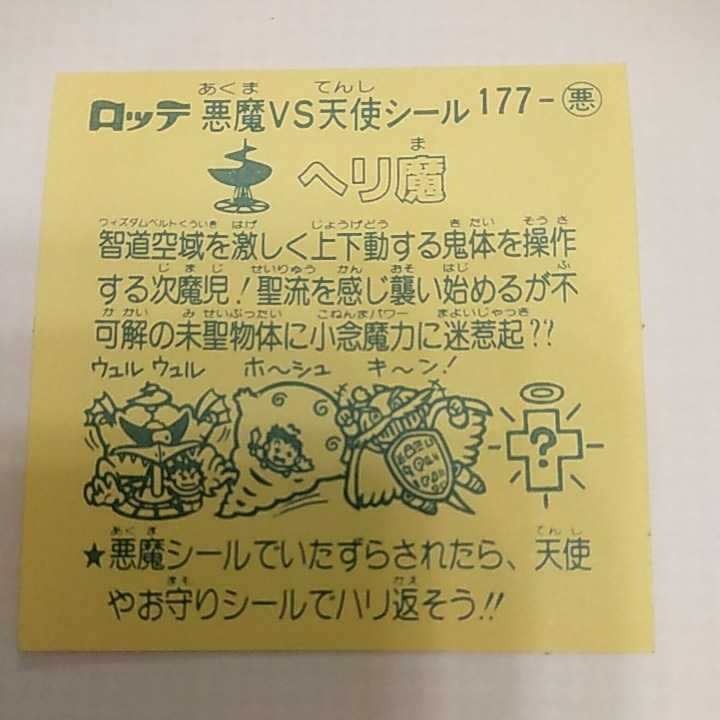 あくま てんし
ロッテ 悪魔VS天使シール 177-悪
ま
ヘリ魔
ウィズダムベルトくういき はげ じょうげどう きたい そうさ
智道空域を激しく上下動する鬼体を操作
じまじ せいりゅう かん おそ はじ ふ
する次魔児!聖流を感じ襲い始めるが不
かかい みせいぶったい こねんまパワー まよいじゃっき
可解の未聖物体に小念魔力に迷惹起??
ウュル ウュル ホ〜シュ キ〜ン!
?
あくま てんし
★悪魔シールでいたずらされたら、天使
まも かえ
やお守りシールでハリ返そう!!